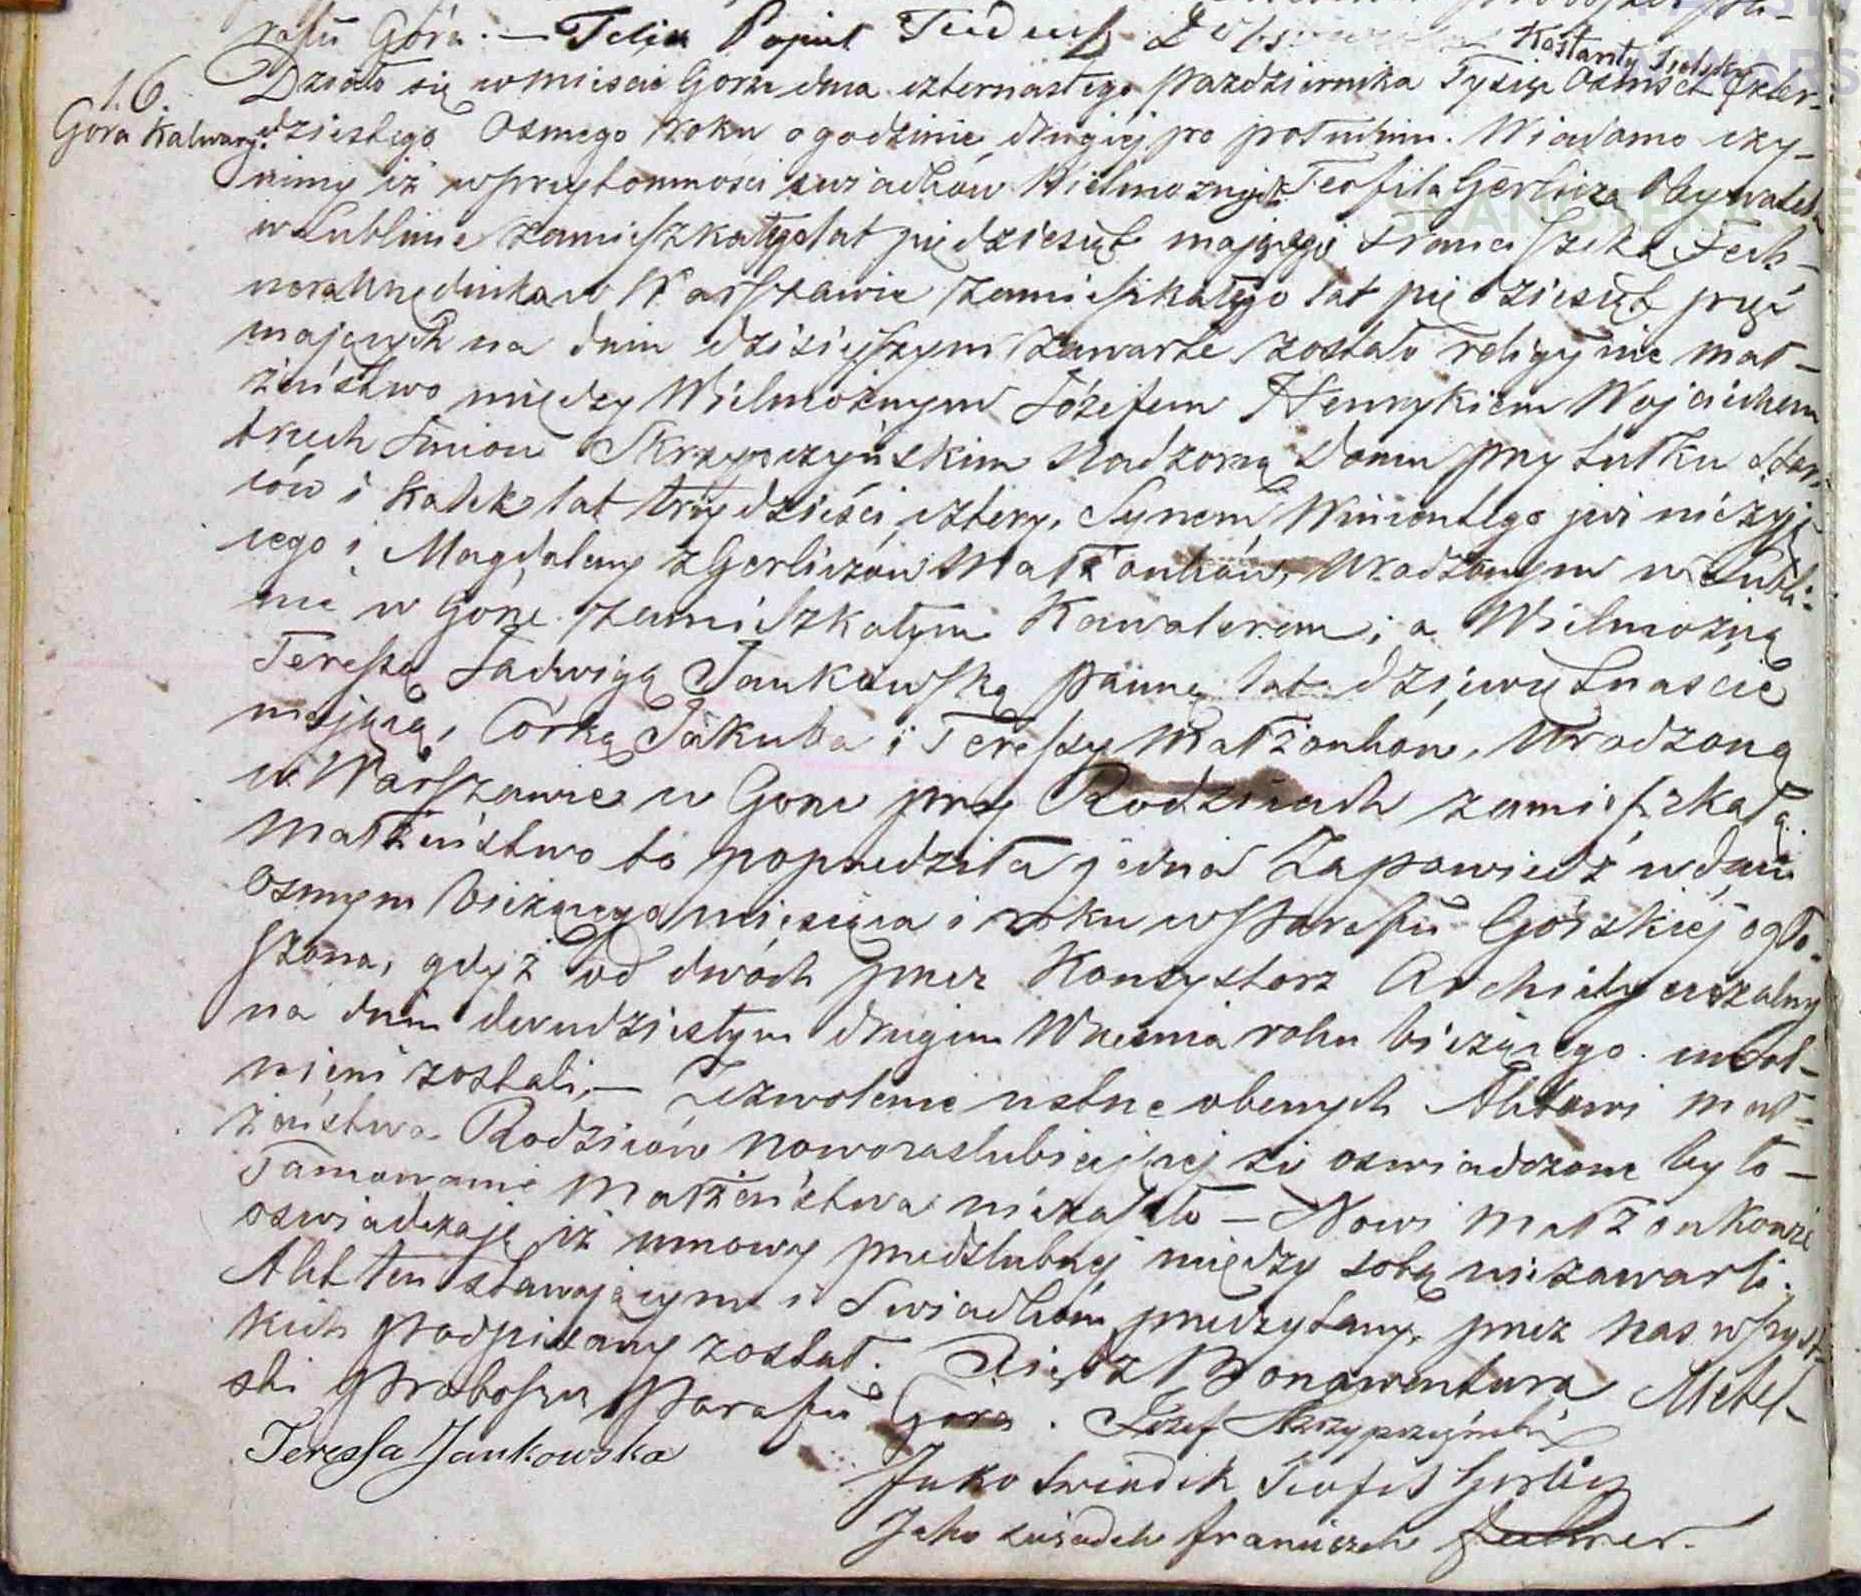 rafii Góra. — Felix Popiel
Kostanty
16.
Góra Kalwary.
Działo się w mieście Górze dnia czternastego Października Tysiąc Osmset Czter-
dziestego Osmego Roku o godzinie drugiéj po południu. Wiadomo czy-
nimy iż w przytomności świadków Wielmożnych Teofila Gerlicza Obywatela
w Lublinie zamieszkałego lat piędziesiąt mającego Franciszka Fech-
nera Urzędnika w Warszawie zamieszkałego lat piędziesiąt pięć
mających na dniu dzisiejszym zawarte zostało religijnie mał-
żeństwo między Wielmożnym Józefem Henrykiem Wojciechem
trzech Imion Skrzypczyńskim Nadzorcą Domu przy Tutku Star-
ców i Kalek lat trzydzieści cztery, Synem Wincentego już nieżyją-
cego i Magdaleny z Gerliczów Małżonków, Urodzonym w Lubli-
nie w Górze zamieszkałym Kawalerem; a Wielmożną
Teressą Jadwigą Jankowską panną lat dziewiętnaście
mającą, Córką Jakuba i Teressy Małżonków, Urodzoną
w Warszawie w Górze przy Rodzicach zamieszkałą
Małżeństwo to poprzedziła jedna Zapowiedź w dniu
osmym bieżącego miesiąca i roku w Parafii Górskiéj ogło-
szona, gdyż od dwóch przez Konsystorz Archidyecezalny
na dniu dwudziestym drugim Września roku bieżącego uwol-
nieni zostali. — Zezwolenie ustne obecnych Aktowi mał-
żeństwa Rodziców nowozaślubiającej się oswiadczone było —
Tamowanie Małżeństwa niezaszło — Nowi Małżonkowie
oswiadczają iż umowy przedślubnej między sobą niezawarli.
Akt ten stawającym i Swiadkom przeczytany, przez nas wszyst-
kich podpisany został. Xiądz Bonawentura Metel-
ski Proboszcz Parafii Góra. Józef Skrzypczyński
Teressa Jankowska
Jako Swiadek Teofil Gerlicz
Jako świadek Franciszek Fechner.